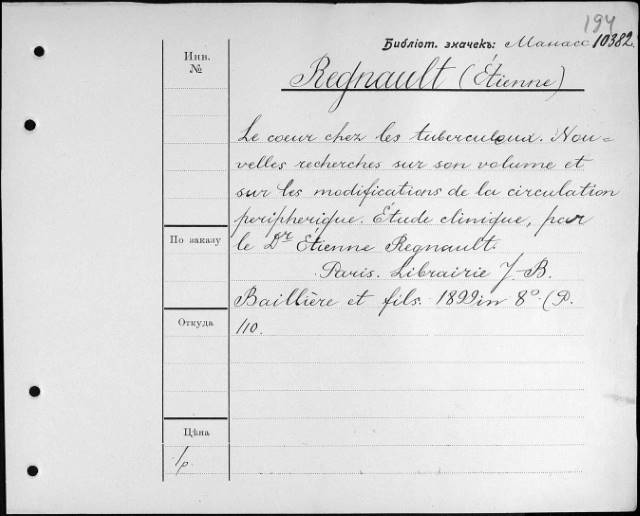 194
Библіот. значекъ: Манасс 10382.
Инв. №
Regnault (Étienne)
Le coeur chez les tuberculeux. Nou-
velles recherches sur son volume et
sur les modifications de la circulation
peripherique. Étude clinique, par
le Dr Étienne Regnault.
Paris. Librairie J-B.
Baillière et fils. 1899 in 8° (P.
110.
По заказу
Откуда
Цѣна
1р.